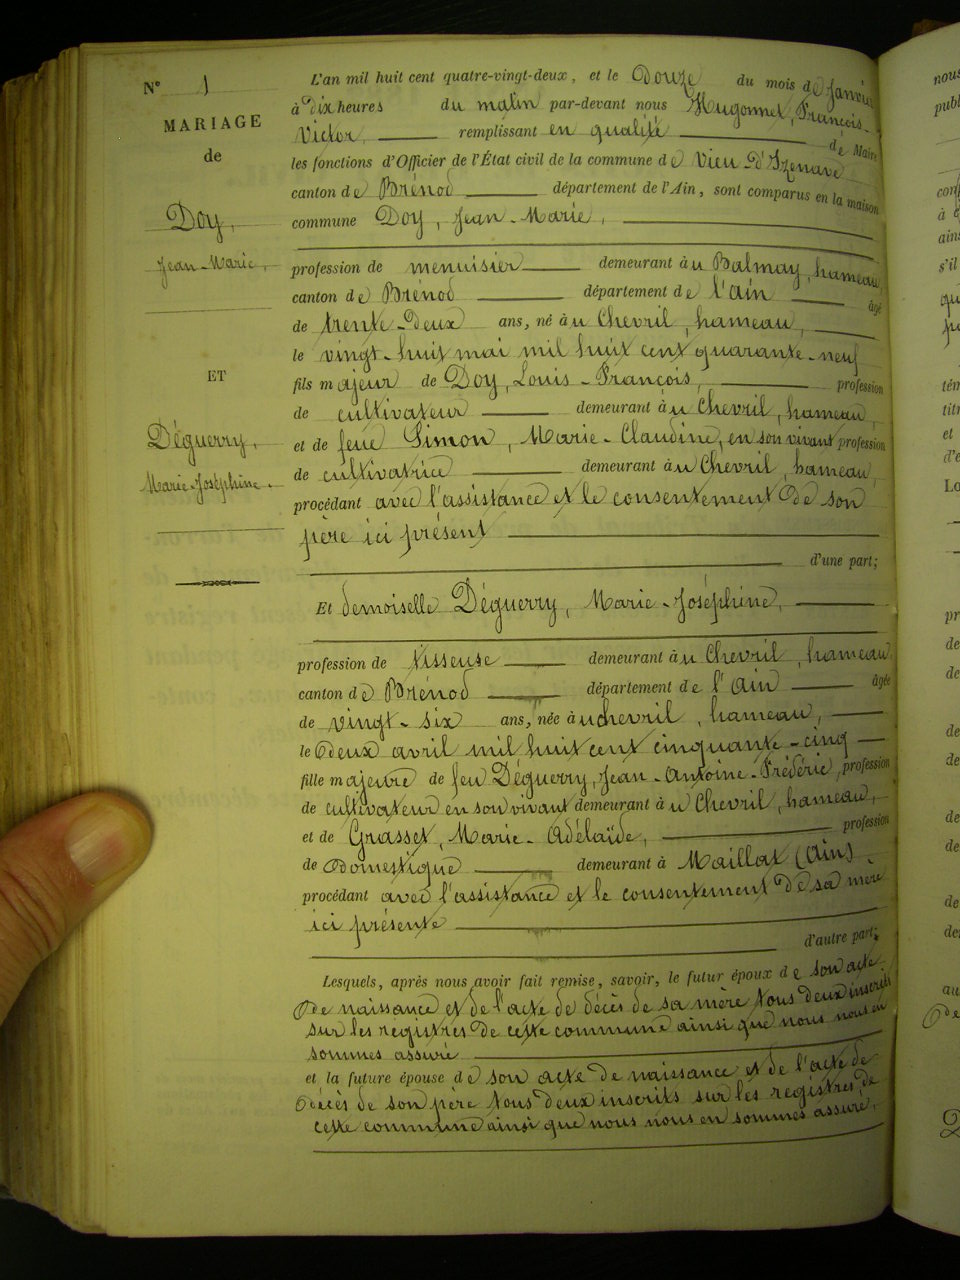 N° 1
MARIAGE
de
Doy,
Jean-Marie,
ET
Déguerry,
Marie-Joséphine.
L'an mil huit cent quatre-vingt-deux, et le Douze du mois de Janvier
à Dix heures du matin par-devant nous Hugonnet, François-
Victor, remplissant en qualité de Maire
les fonctions d'Officier de l'État civil de la commune de Vieu-d'Izenave
canton de Brénod département de l'Ain, sont comparus en la maison
commune Doy, Jean-Marie,
profession de menuisier demeurant à u Balmay, hameau
canton de Brénod département de l'Ain âgé
de trente-Deux ans, né à u Chevril, hameau,
le vingt-huit mai mil huit cent quarante-neuf
fils majeur de Doy, Louis-François, profession
de cultivateur demeurant à u Chevril, hameau
et de feue Simon, Marie-Claudine, en son vivant profession
de cultivatrice demeurant à u Chevril, hameau
procédant avec l'assistance et le consentement De son
père ici présent
d'une part;
Et demoiselle Déguerry, Marie-Joséphine,
profession de tisseuse demeurant à u Chevril, hameau
canton de Brénod département de l'Ain âgée
de vingt-six ans, née à u chevril, hameau,
le Deux avril mil huit cent cinquante-cinq
fille majeure de feu Déguerry, Jean-Antoine-Frédéric, profession
de cultivateur en son vivant demeurant à u Chevril, hameau,
et de Grasset, Marie-Adélaïde, profession
de Domestique demeurant à Maillat (Ain).
procédant avec l'assistance et le consentement De sa mère
ici présente
d'autre part;
Lesquels, après nous avoir fait remise, savoir, le futur époux de son acte
De naissance et de l'acte de décès de sa mère tous deux inscrits
sur les registres De cette commune ainsi que nous nous en
sommes assuré
et la future épouse de son acte De naissance et de l'acte de
Décès de son père tous deux inscrits sur les registres de
cette commune ainsi que nous nous en sommes assuré.